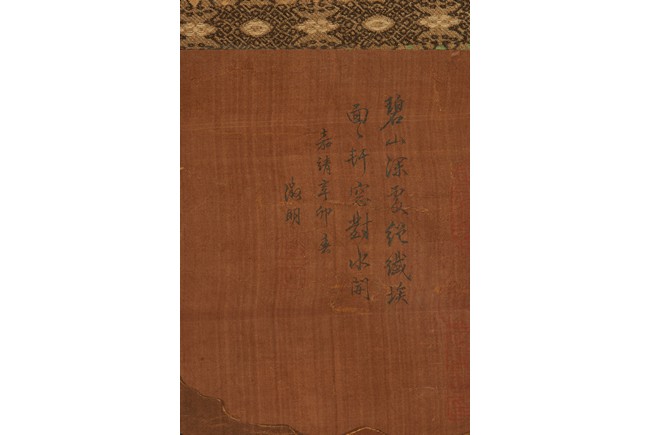 碧山深處絕纖埃
面〻軒窓對水開
嘉靖辛卯春
徵明